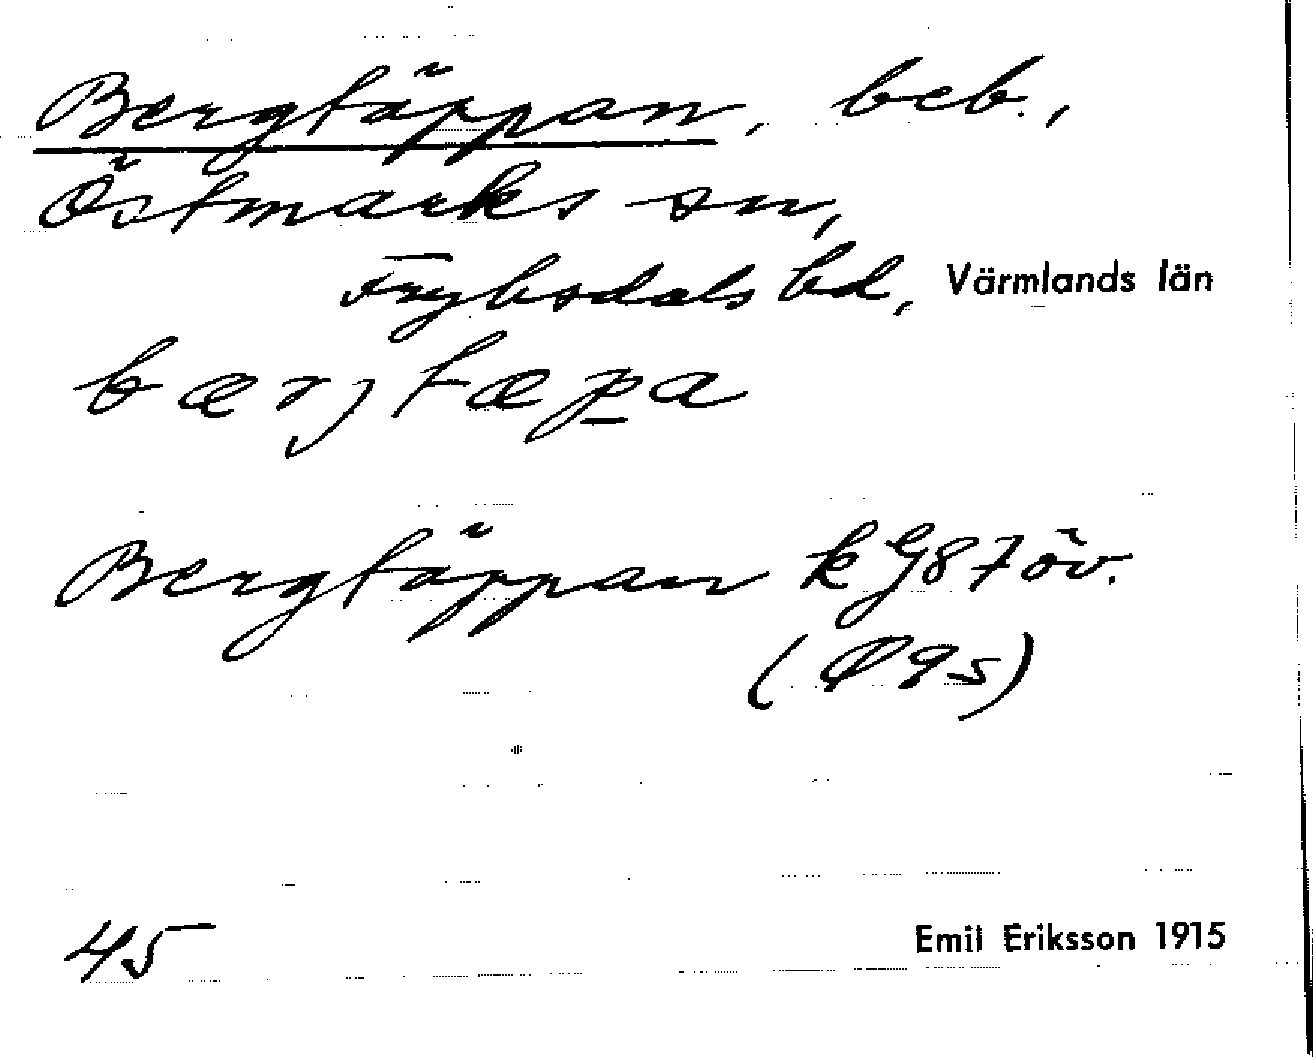 Bergtäppan, beb.,
Östmarks sn,
Fryksdals hd, Värmlands län
bærjtæpa
Bergtäppan k G87 öv.
(Q95)
45
Emil Eriksson 1915